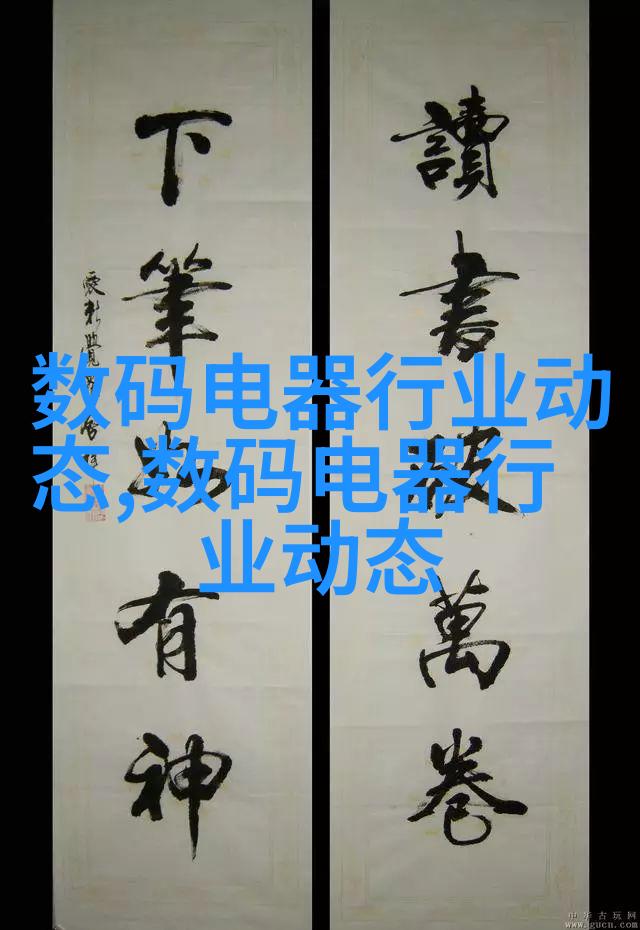 讀書破萬卷
下筆如有神
数码电器行业动
态,数码电器行
业动态
中华古玩网
www.gucn.com